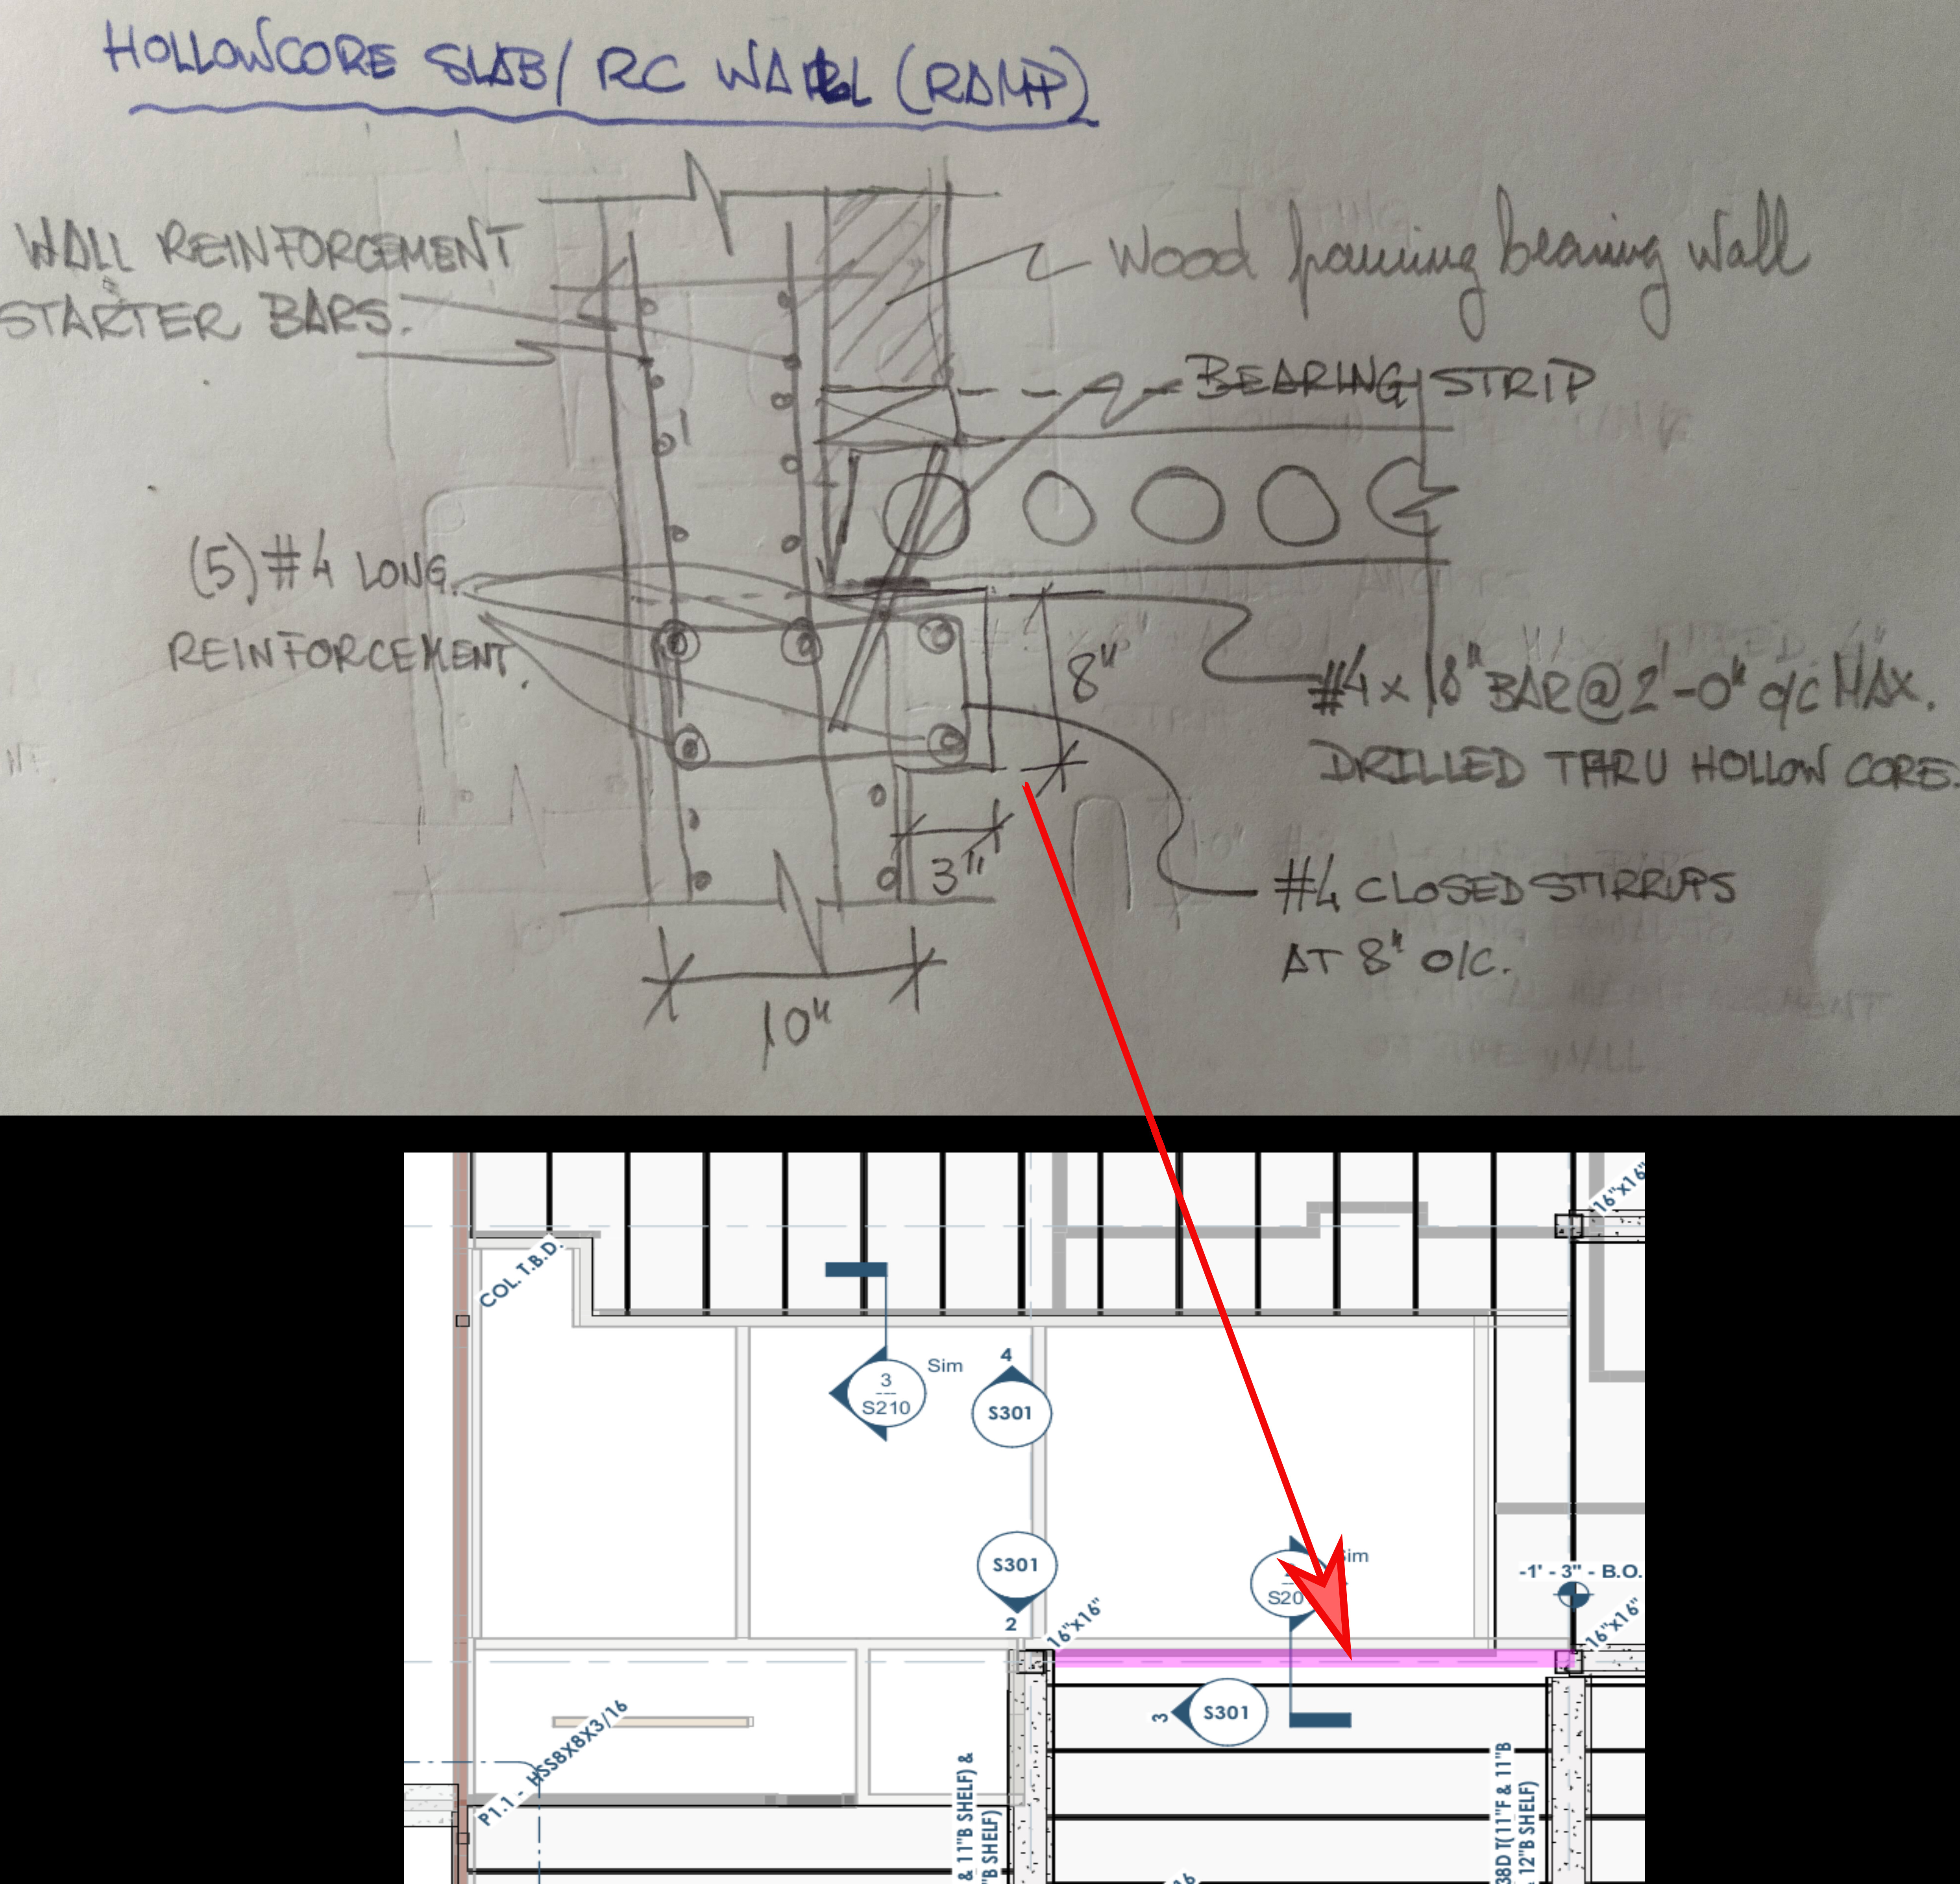 HOLLOWCORE SLAB/ RC WALL (RAMP)
WALL REINFORCEMENT
STARTER BARS.
Wood framing bearing wall
BEARING STRIP
(5) #4 LONG.
REINFORCEMENT.
8"
#4 x 18" BAR @ 2'-0" o/c MAX.
DRILLED THRU HOLLOW CORE.
3"
#4 CLOSED STIRRUPS
AT 8" O/C.
10"
16"x16"
COL. T.B.D.
3
---
S210
Sim
4
S301
S301
2
16"x16"
S20
im
-1' - 3" - B.O.
16"x16"
3
S301
P1.1 - HSS8X8X3/16
& 11"B SHELF) &
"B SHELF)
38D T(11"F & 11"B
12"B SHELF)
16